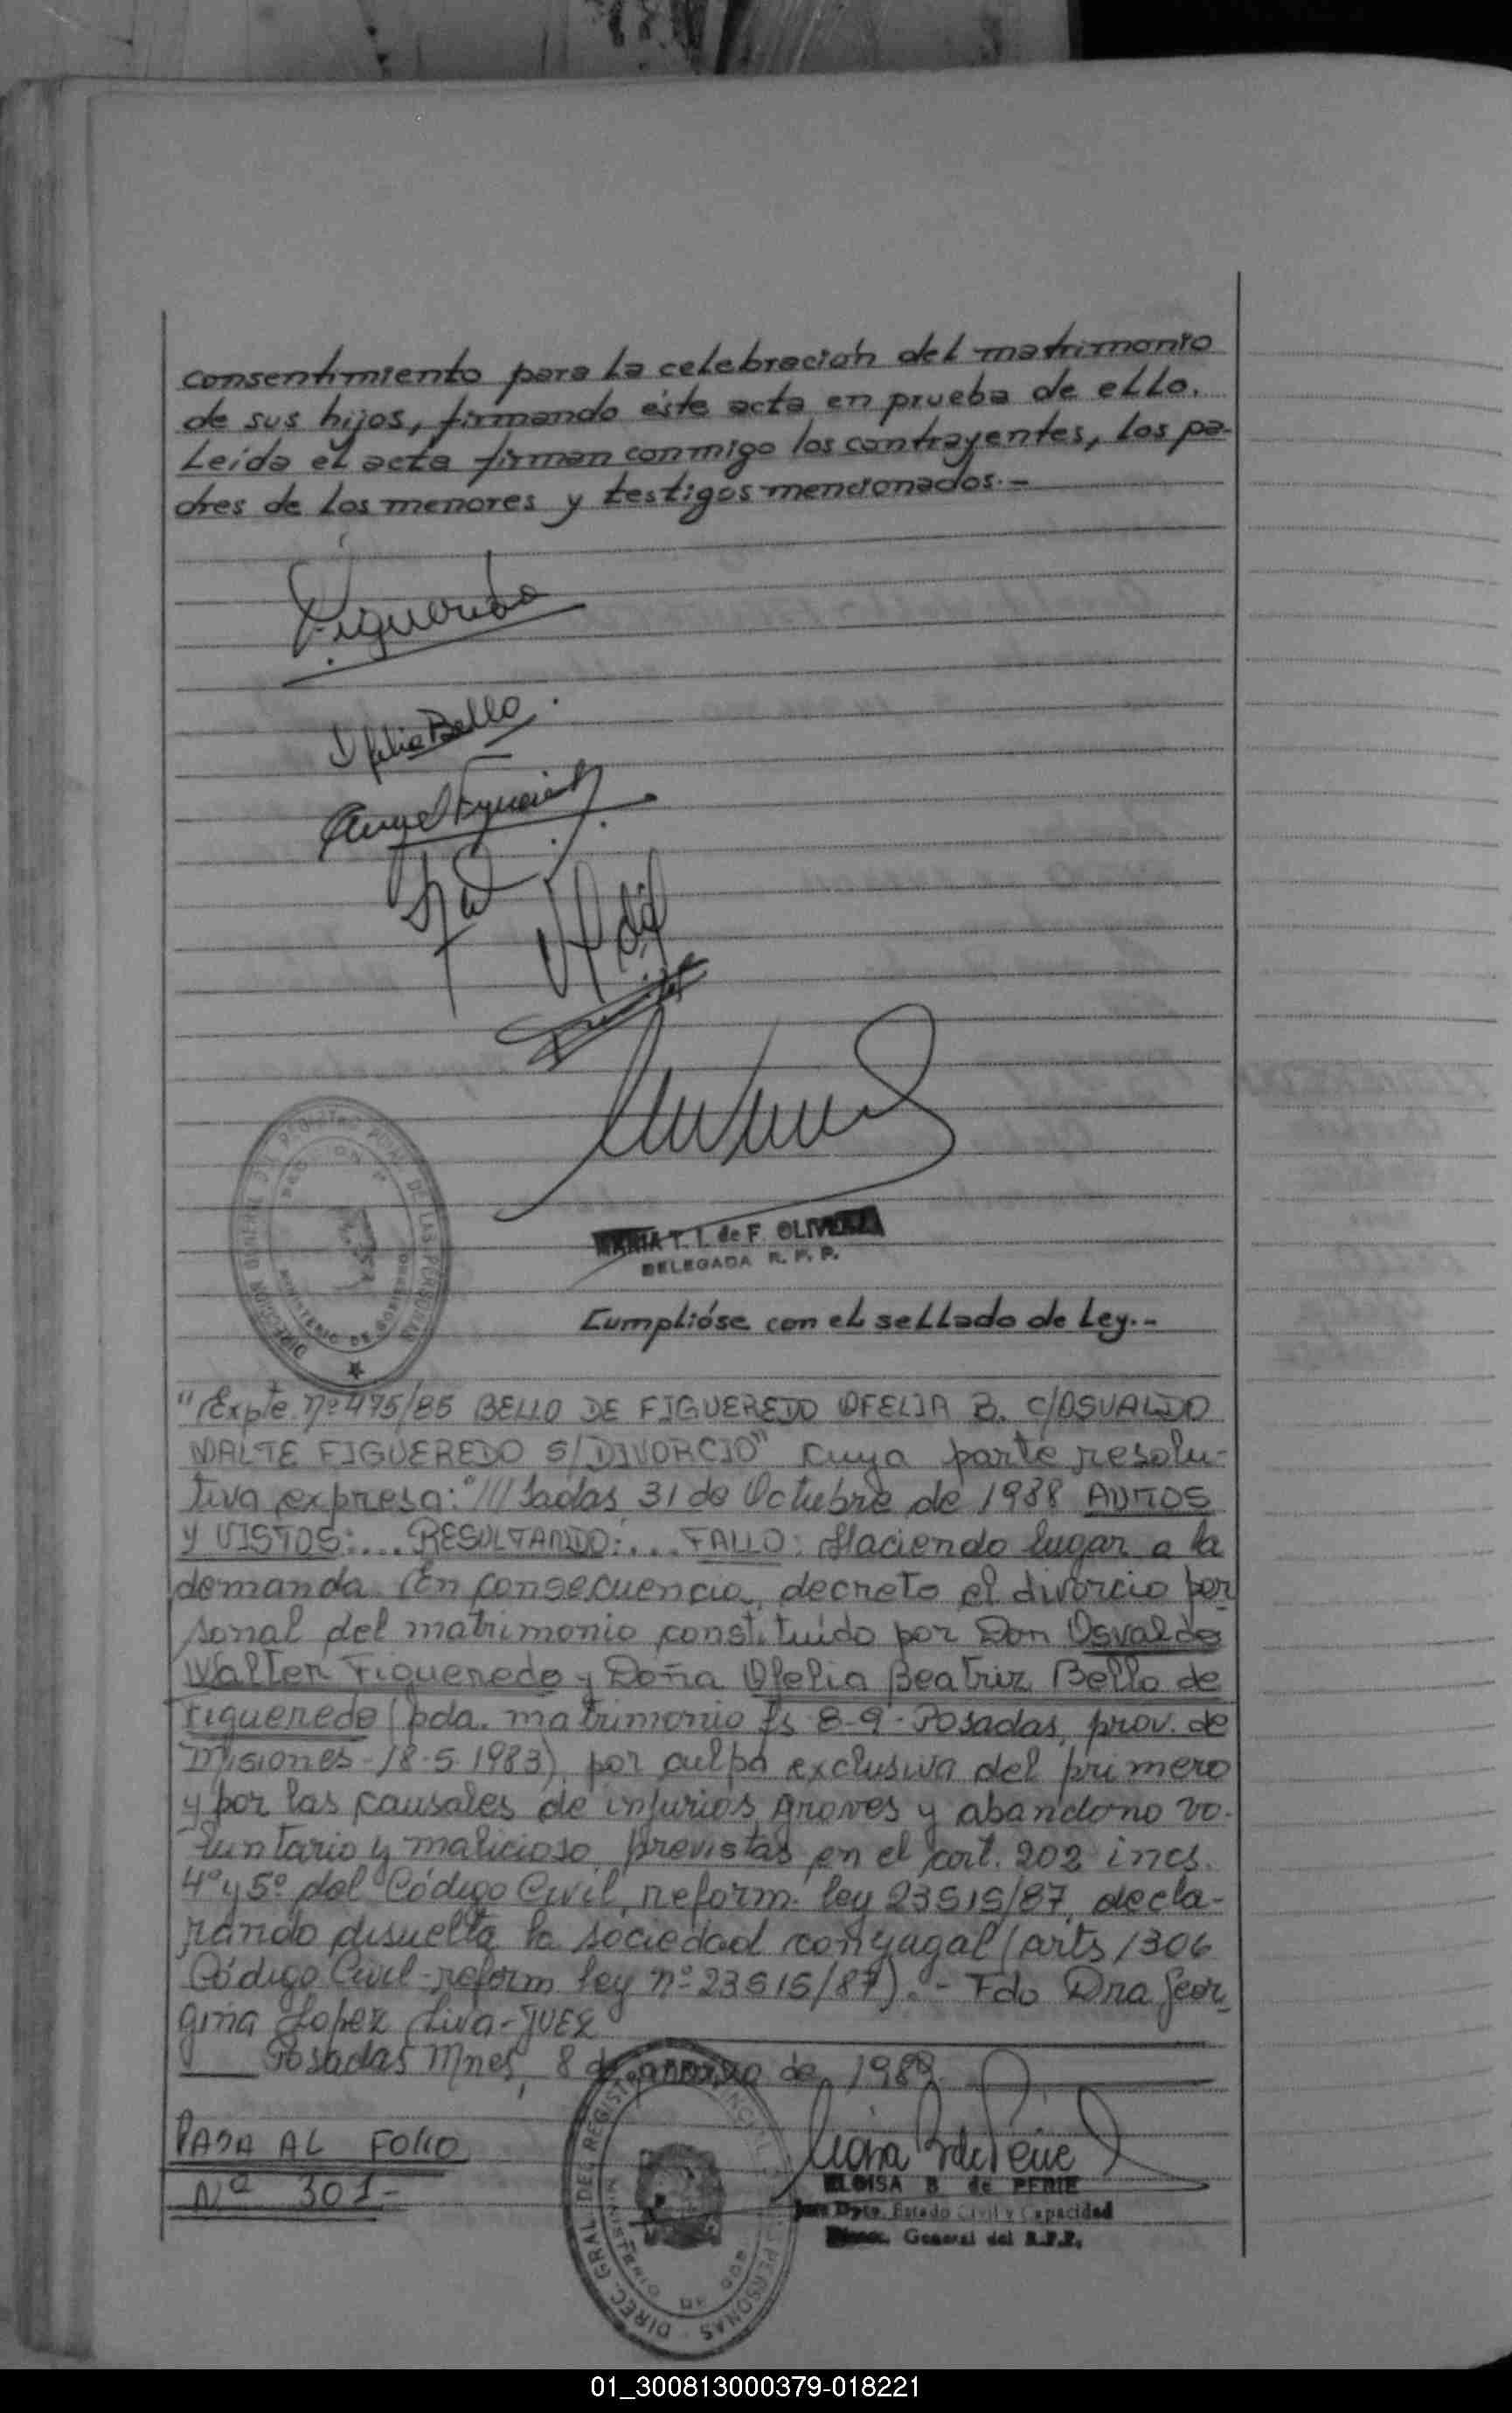 consentimiento para la celebración del matrimonio
de sus hijos, firmando éste acta en prueba de ello.
Leída el acta firman conmigo los contrayentes, los pa-
dres de los menores y testigos mencionados.-
Figueredo
Ofelia Bello
Angel Figueredo
DIRECCION GENERAL DEL REGISTRO PCIAL. DE LAS PERSONAS
MINISTERIO DE GOBIERNO
MARIA T. I. de F. OLIVEIRA
DELEGADA R. P. P.
Cumplióse con el sellado de Ley.-
"Expte nº 475/85 BELLO DE FIGUEREDO OFELIA B. C/OSVALDO
WALTE FIGUEREDO S/DIVORCIO" cuya parte resolu-
tiva expresa: "///sadas, 31 de Octubre de 1988 AUTOS
y VISTOS:... RESULTANDO:... FALLO: Haciendo lugar a la
demanda. En consecuencia, decreto el divorcio per-
sonal del matrimonio constituído por Don Osvaldo
Walter Figueredo y Doña Ofelia Beatriz Bello de
Figueredo (pda. matrimonio fs 8-9- Posadas, prov. de
Misiones-18-5-1983), por culpa exclusiva del primero
y por las causales de injurias graves y abandono vo-
luntario y malicioso, previstas en el art. 202 incs.
4º y 5º del Código Civil, reform. ley 23515/87, decla-
rando disuelta la sociedad conyugal (arts 1306
Código Civil-reform ley nº 23515/87).- Fdo Dra Geor-
gina Lopez Liva-JUEZ
Posadas Mnes, 8 de de 1989.
PASA AL FOLIO
Nº 301-
DIREC. GRAL. DEL REGISTRO PROVINCIAL DE LAS PERSONAS
MINISTERIO DE GOB.
ELOISA B. de PERIE
Jefe Dpto. Estado Civil y Capacidad
Direc. General del R.P.P.
01_300813000379-018221